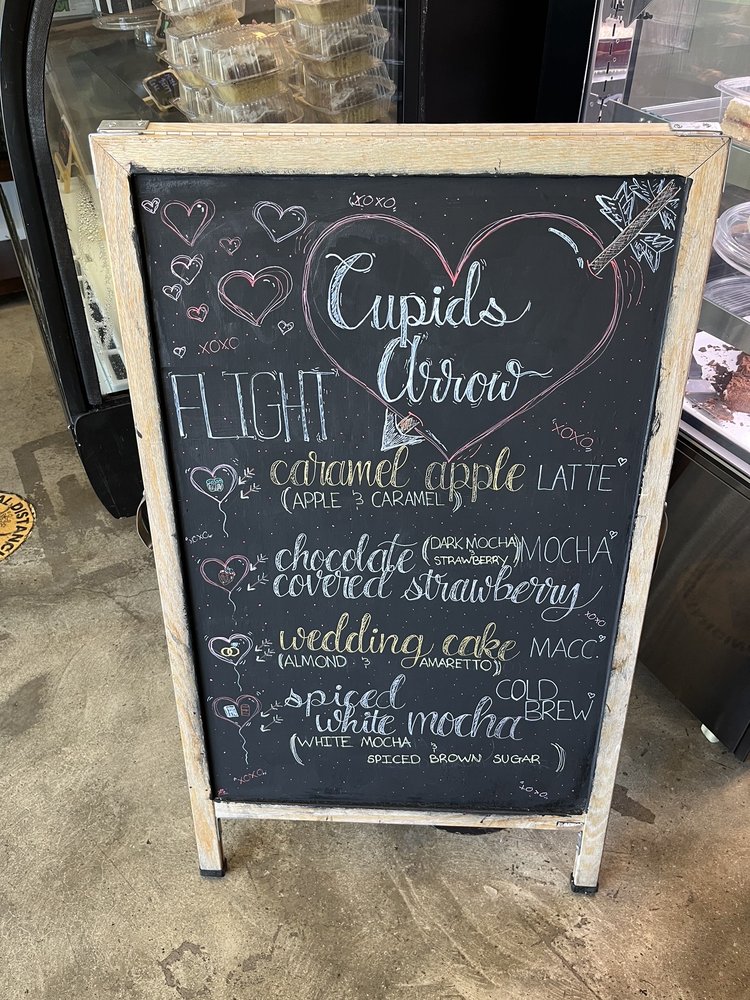 XOXO
Cupids
Arrow
XOXO
FLIGHT
XOXO
caramel apple LATTE
(APPLE & CARAMEL)
XOXO
chocolate (DARK MOCHA & STRAWBERRY) MOCHA
covered strawberry
XOXO
wedding cake MACC.
(ALMOND & AMARETTO)
spiced COLD BREW
white mocha
(WHITE MOCHA &
SPICED BROWN SUGAR)
XOXO
XOXO
AL DISTANC